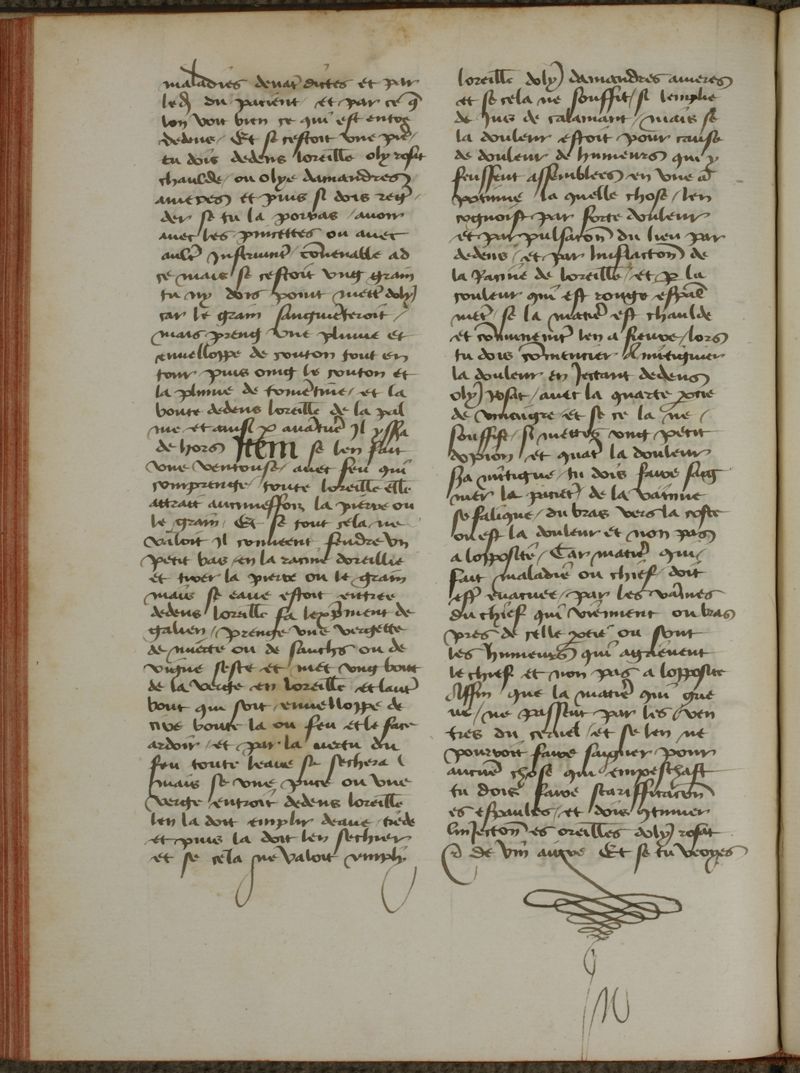 maladies devāt dictes et par
le dͥ du pacient et par ce q̄
lon voit bien ce qui est entre
dedens / Et se cestoit une pīer
tu dois dedens loreille oly rosat
chaulde / ou olye damandres
ameres et puis si dois regͬ
der se tu la porras / avoir
avec les pincettes ou avec
aultͬ Instrumēt cōvenable ad
ce mais se cestoit ung grain
tu ny dois point mettͬ doly
car le grain sangmēteroit /
mais preng une plume et
envelloppe de couton tout en
tour puis oing le couton et
la plume de tomētine / et la
boute dedens loreille de la pal
me et ainsi p avātuͬe Il yssͬa
de hors Item se len fait
une ventouse / avec feu qui
comprenge / toute loreille elle
attrait aucuneffois la pierre ou
le grain / Et se tout cela ne
valoit Il convient fendre un
petit bas / en la racine doreille
et tirer la pierre ou le grain
mais se eaue estoit entree
dedens loreille fa lexpīment de
galien / prenge une vergette
de mirte ou de sauchs ou de
vigne seste et met ung bout
de la verge en loreille et laut̄
bout qui soit / envelloppe de
cire boute la ou feu et le face
ardoir / et par la vertu du
feu toute leaue se sechera
mais se une puce ou une
verge entroit dedens loreille
len la doit emplir deaue tiede
et puis la doit len sechier
et se cela ne valoit emply
loreille doly damandres ameres
et se cela ne souffit / si lemplie
de Jus de calamant / mais se
la douleur estoit pour cause
de douleur de humeurs qui y
feussent assemblees en une
potume la quelle chose / len
cognoist par forte douleur
et par pulsacon du lieu par
dedens / et par Inflacton de
la Racine de loreille / et p la
couleur qui est rouge espāl
mēt / se la matiͤe est chaulde
et cōmunemēt len a fievre / lors
tu dois cōmencier a mitiguier
la douleur en Jectant dedens
oly rosat / avec la quarte ptie
de vinaigre et se ce la ne /
souffist / si mettes ung petit
dopion / et quāt la douleur
sͬa mitigue / tu dois faire saig
nier la paciēt de la vainne
sefalique / du bras vers la coste
ou est la douleur et non pas
a lopposite / Car matiͤe qui /
fait maladie ou chief / doit
estͬ evacuee / par les vaines
du chief qui viennent ou bras
pres de celle ptie ou sont
les humeurs qui agrievent
le chief et non pas a lopposite
Affin que la matiͤe qui grie
ve / ne passent par les ven
tres du cervel / et se len ne
pourroit faire saignier pour
aucune chose qui empeschast
tu dois faire scariffication
es espaules / et dois
linJecton es oreilles doly rosat
de vin aigre Et se tu veoyes